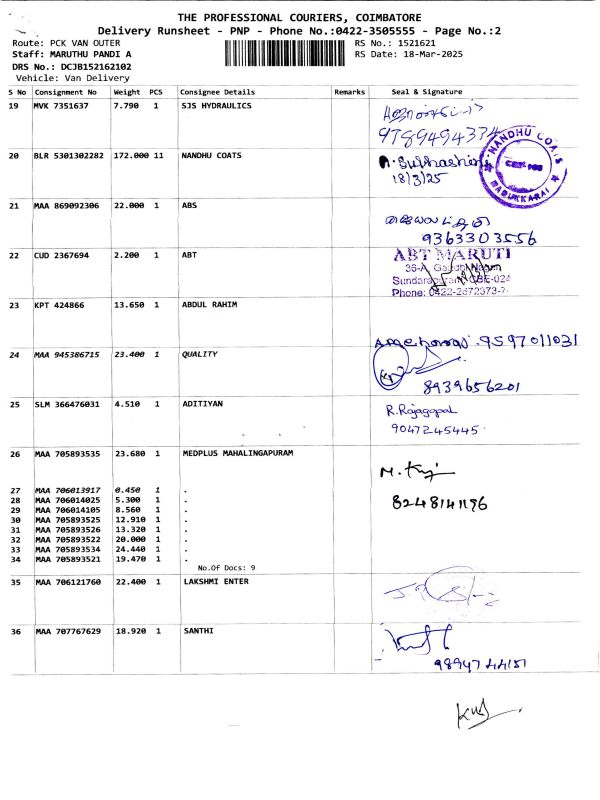 THE PROFESSIONAL COURIERS, COIMBATORE
Delivery Runsheet - PNP - Phone No.:0422-3505555 - Page No.:2
Route: PCK VAN OUTER
RS No.: 1521621
Staff: MARUTHU PANDI A
RS Date: 18-Mar-2025
DRS No.: DCJB152162102
Vehicle: Van Delivery
S No Consignment No Weight PCS Consignee Details Remarks Seal & Signature
19 MVK 7351637 7.790 1 SJS HYDRAULICS
9789494374
20 BLR 5301302282 172.000 11 NANDHU COATS
NANDHU COATS
MADUKKARAI
18/3/25
21 MAA 869092306 22.000 1 ABS
9363303556
22 CUD 2367694 2.200 1 ABT
ABT MARUTI
36-A, Gandhi Nagar
Sundarapuram, CBE-024
Phone: 0422-2672373-
23 KPT 424866 13.650 1 ABDUL RAHIM
9597011031
24 MAA 945386715 23.400 1 QUALITY
8939656201
25 SLM 366476031 4.510 1 ADITIYAN
R.Rajagopal
9047245445
26 MAA 705893535 23.680 1 MEDPLUS MAHALINGAPURAM
27 MAA 706013917 0.450 1 .
28 MAA 706014025 5.300 1 .
29 MAA 706014105 8.560 1 .
30 MAA 705893525 12.910 1 .
31 MAA 705893526 13.320 1 .
32 MAA 705893522 20.000 1 .
33 MAA 705893534 24.440 1 .
34 MAA 705893521 19.470 1 .
8248141196
No.Of Docs: 9
35 MAA 706121760 22.400 1 LAKSHMI ENTER
36 MAA 707767629 18.920 1 SANTHI
9894744151